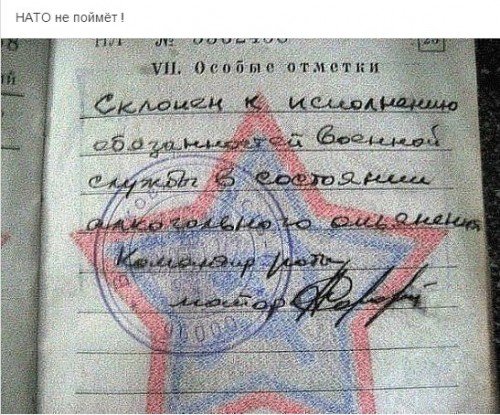 НАТО не поймёт !
VII. Особые отметки
Склонен к исполнению
обязанностей военной
службы в состоянии
алкогольного опьянения
Командир роты
майор